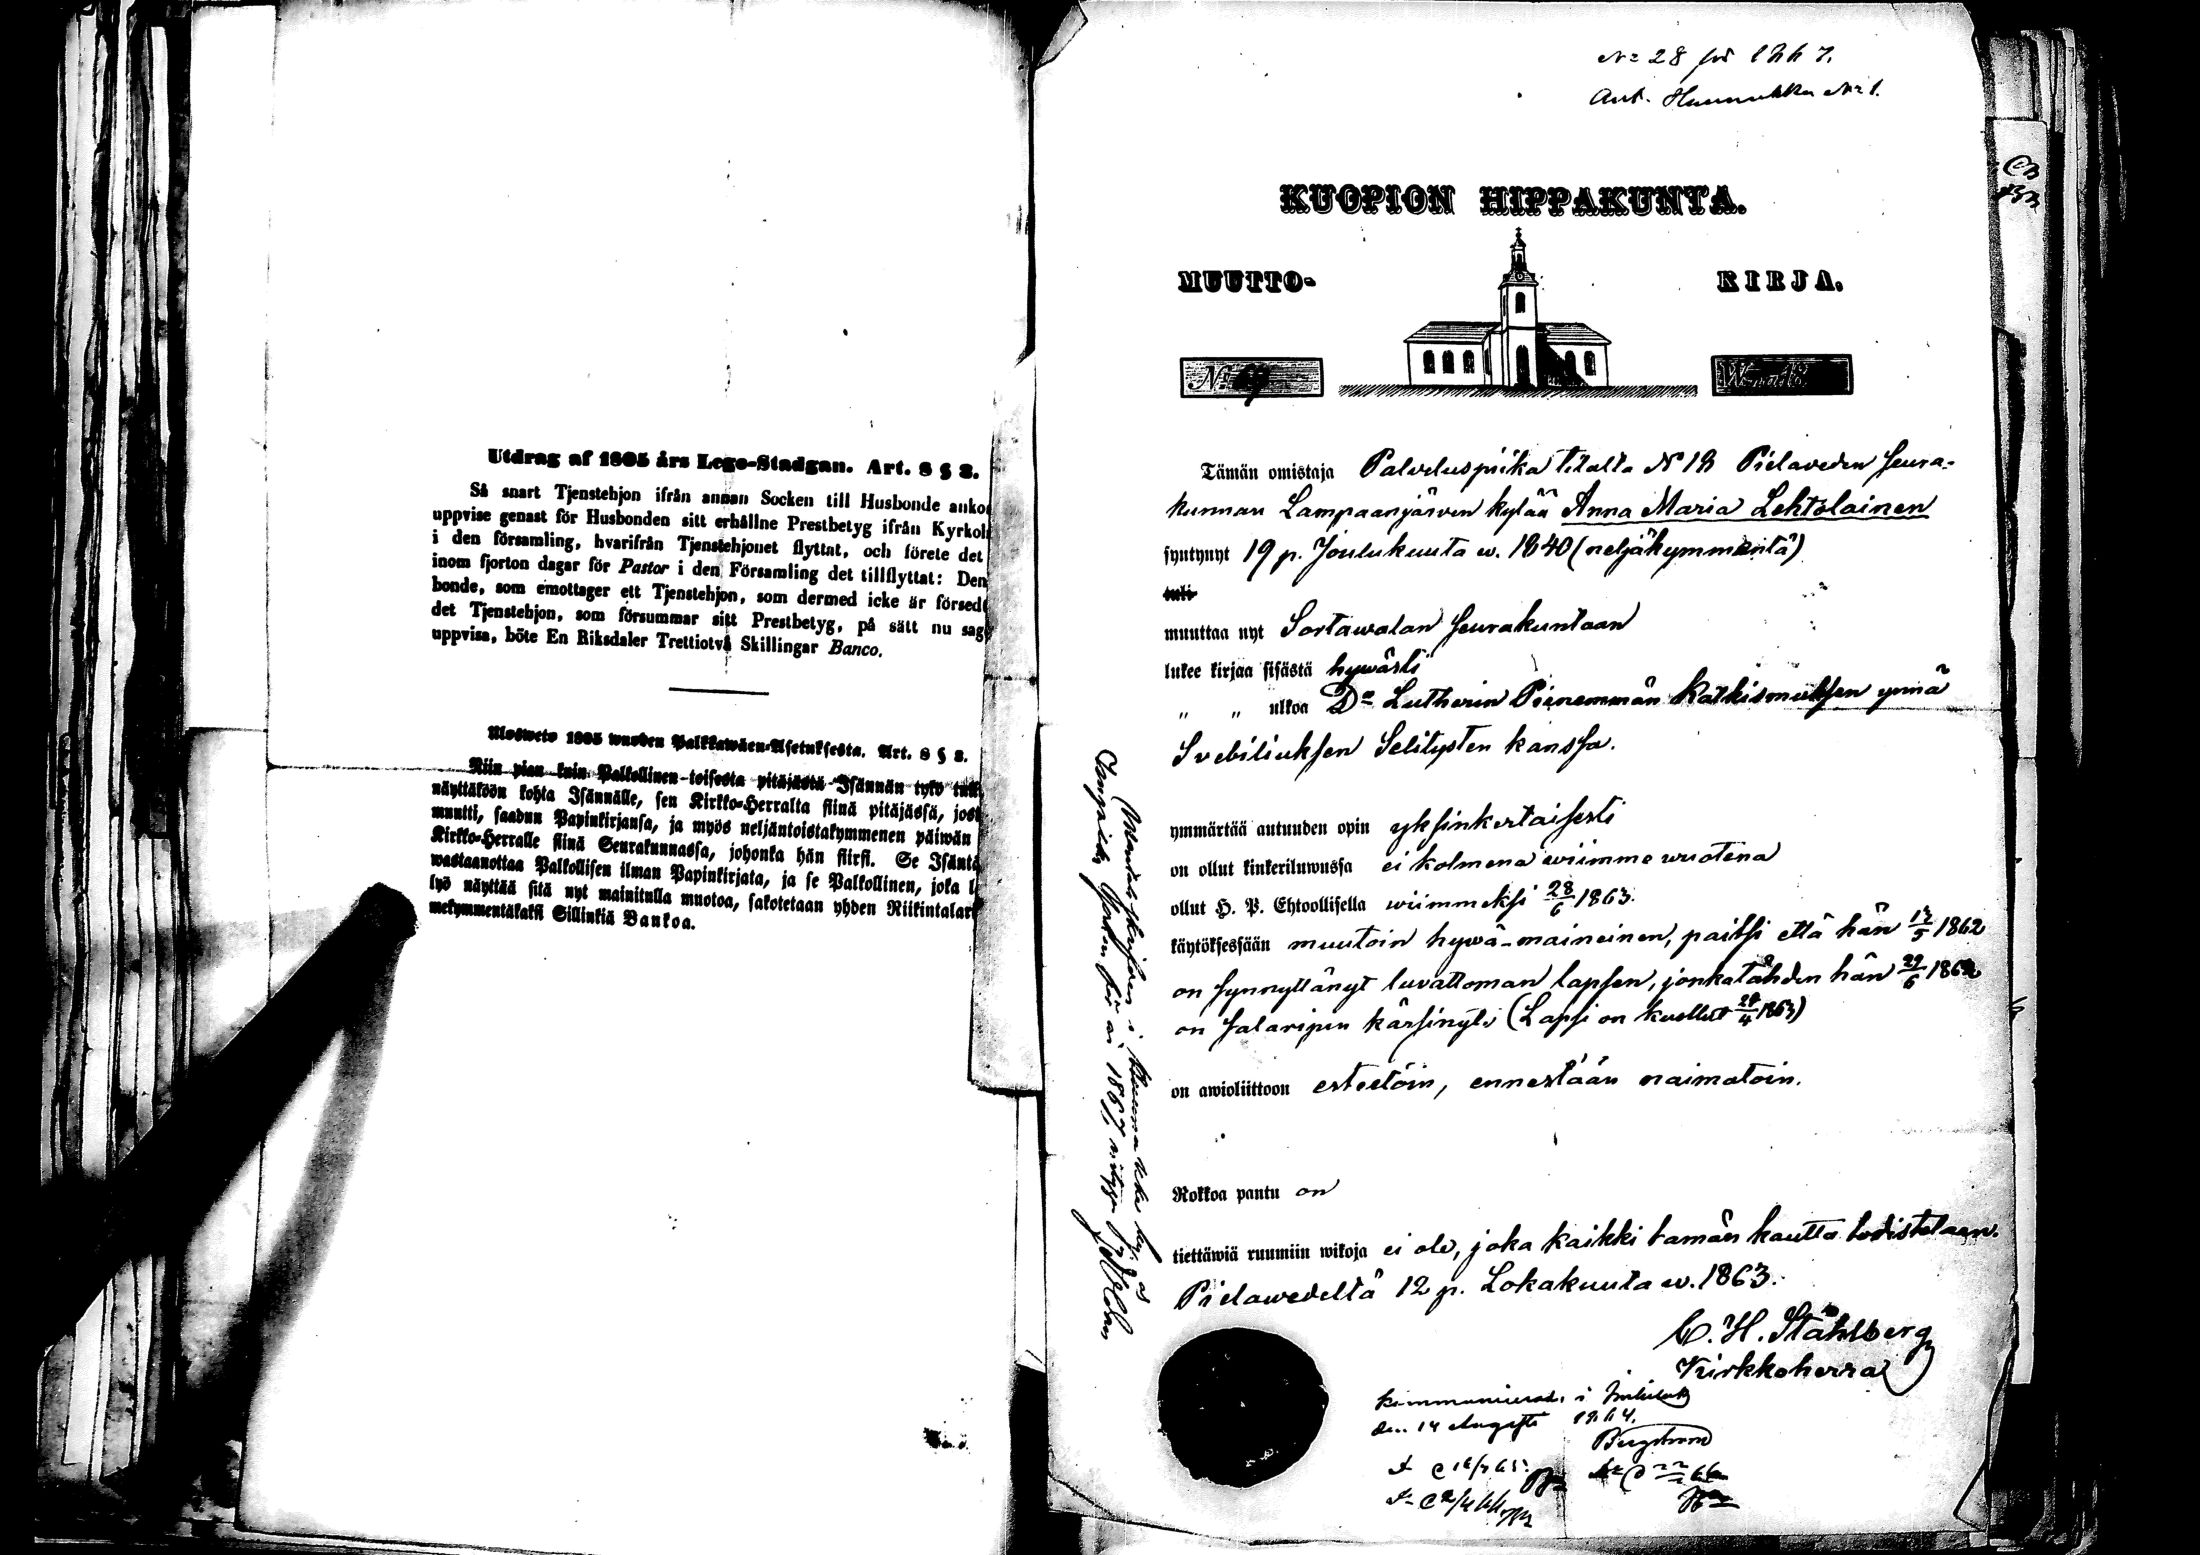 Utdrag af 1805 års Lego-Stadgan. Art. 8 § 2.
Så snart Tjenstehjon ifrån annan Socken till Husbonde anko
uppvise genast för Husbonden sitt erhållne Prestbetyg ifrån Kyrkoh
i den församling, hvarifrån Tjenstehjonet flyttat, och förete det
inom fjorton dagar för Pastor i den Församling det tillflyttat: Den
bonde, som emottager ett Tjenstehjon, som dermed icke är försedt
det Tjenstehjon, som försummar sitt Prestbetyg, på sätt nu sag
uppvisa, böte En Riksdaler Trettiotvå Skillingar Banco.
Ulosweto 1805 wuoden Palkkawäen-Asetuksesta. Art. 8 § 2.
Niin pian kuin Palkollinen toisesta pitäjästä Isännän tykö tull
näyttäköön kohta Isännälle, sen Kirkko-Herralta siinä pitäjässä, jost
muutti, saadun Papinkirjansa, ja myös neljäntoistakymmenen päiwän
Kirkko-Herralle siinä Seurakunnassa, johonka hän siirsi. Se Isäntä
wastaanottaa Palkollisen ilman Papinkirjata, ja se Palkollinen, joka l
lyö näyttää sitä nyt mainitulla muotoa, sakotetaan yhden Riikintalari
mekymmentäkaksi Sillinkiä Bankoa.
No 28 för 1867.
Ant. No 1.
KUOPION HIPPAKUNTA.
MUUTTO- KIRJA.
No
Tämän omistaja Palveluspiika tilalta No 18 Pielaveden seura-
kunnan Lampaanjärven kylää Anna Maria Lehtolainen
syntynyt 19 p. Joulukuuta w. 1840 (neljäkymmentä)
tuli
muuttaa nyt Sortawalan seurakuntaan
lukee kirjaa sisästä hywästi
" " ulkoa Dn Lutherin Pienemmän Katkismuksen ynnä
Svebiliuksen Selitysten kanssa.
ymmärtää autuuden opin yksinkertaisesti
on ollut kinkeriluwussa ei kolmena wiimme wuotena
ollut H. P. Ehtoollisella wiimmeksi 28/6 1863.
käytöksessään muutoin hywä-maineinen, paitsi että hän 13/5 1862
on synnyttänyt luvattoman lapsen, jonkatähden hän 29/6 1862
on salaripin kärsinyt (Lapsi on kuollut 24/4 1863)
on awioliittoon esteetöin, ennestään naimatoin.
Rokkoa pantu on
tiettäwiä ruumiin wikoja ei ole, joka kaikki tämän kautta todistetaan.
Pielawedeltä 12 p. Lokakuuta w. 1863.
C. H. Ståhlberg
Kirkkoherra
kommunicerat i
den 14 Augusti 1864.
Bergstrom
för år 1867